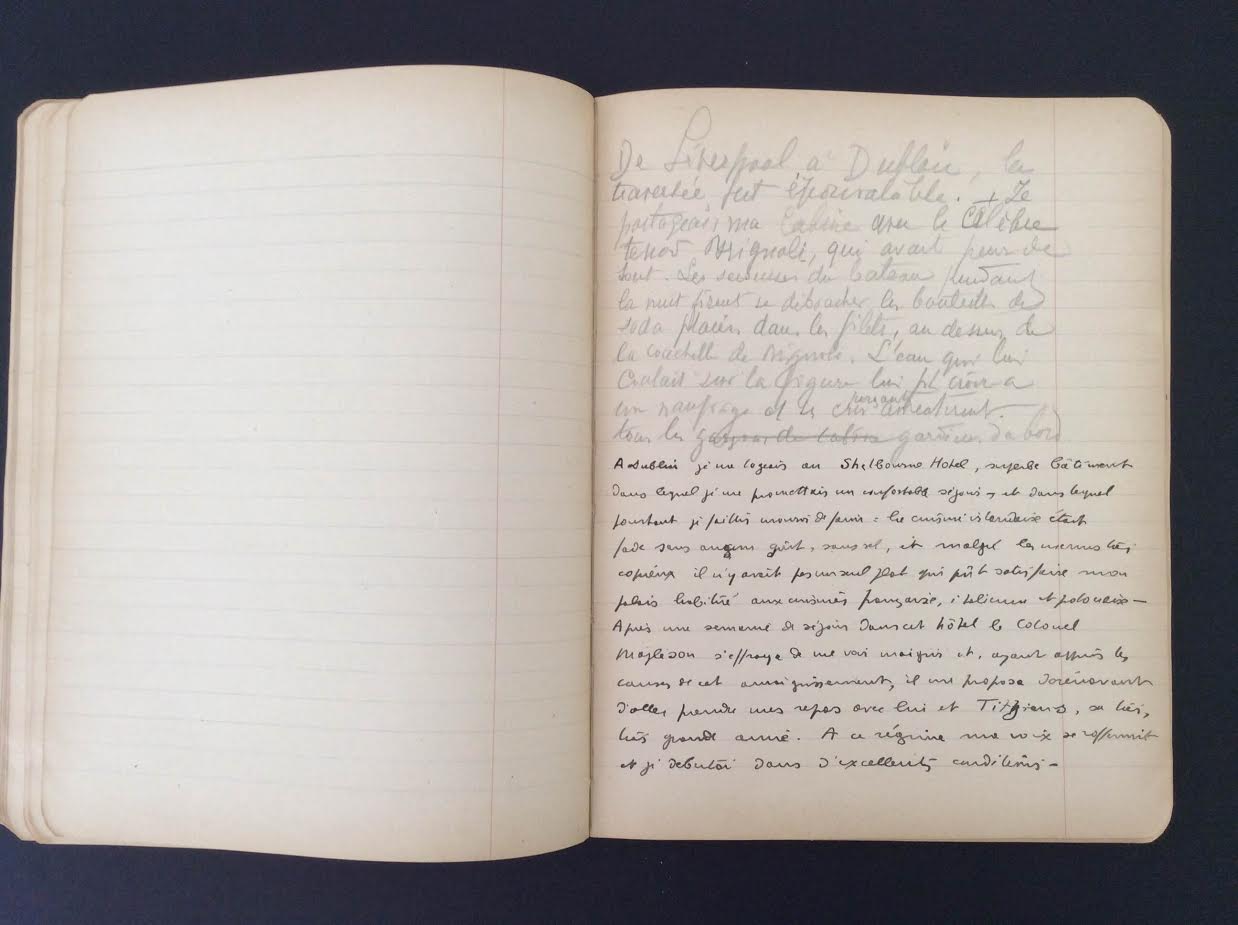 De Liverpool à Dublin, la
traversée fut épouvantable. + Je
partageais ma cabine avec le célèbre
tenor Brignoli, qui avait peur de
tout. Les secousses du bateau pendant
la nuit firent se déboucher les bouteilles de
soda placées dans les filets, au dessus de
la couchette de Brignoli. L'eau qui lui
coulait sur la figure lui fit croire a
un naufrage et ses cris perçants
tous les garçons de cabine gardiens du bord
A Dublin je me logeais au Shelbourne Hotel, superbe bâtiment
dans lequel je me promettais un confortable séjour, et dans lequel
pourtant je faillis mourir de faim : la cuisine irlandaise était
fade sans aucun goût, sans sel, et malgré les menus très
copieux il n'y avait pas un seul plat qui pût satisfaire mon
palais habitué aux cuisines française, italienne et polonaise —
Après une semaine de séjour dans cet hôtel le Colonel
Mapleson s'effraya de me voir maigrir et, ayant appris les
causes de cet amaigrissement, il me proposa dorénavant
d'aller prendre mes repas avec lui et Titjiens, sa très,
très grande amie. A ce régime ma voix se raffermit
et je debutai dans d'excellentes conditions —